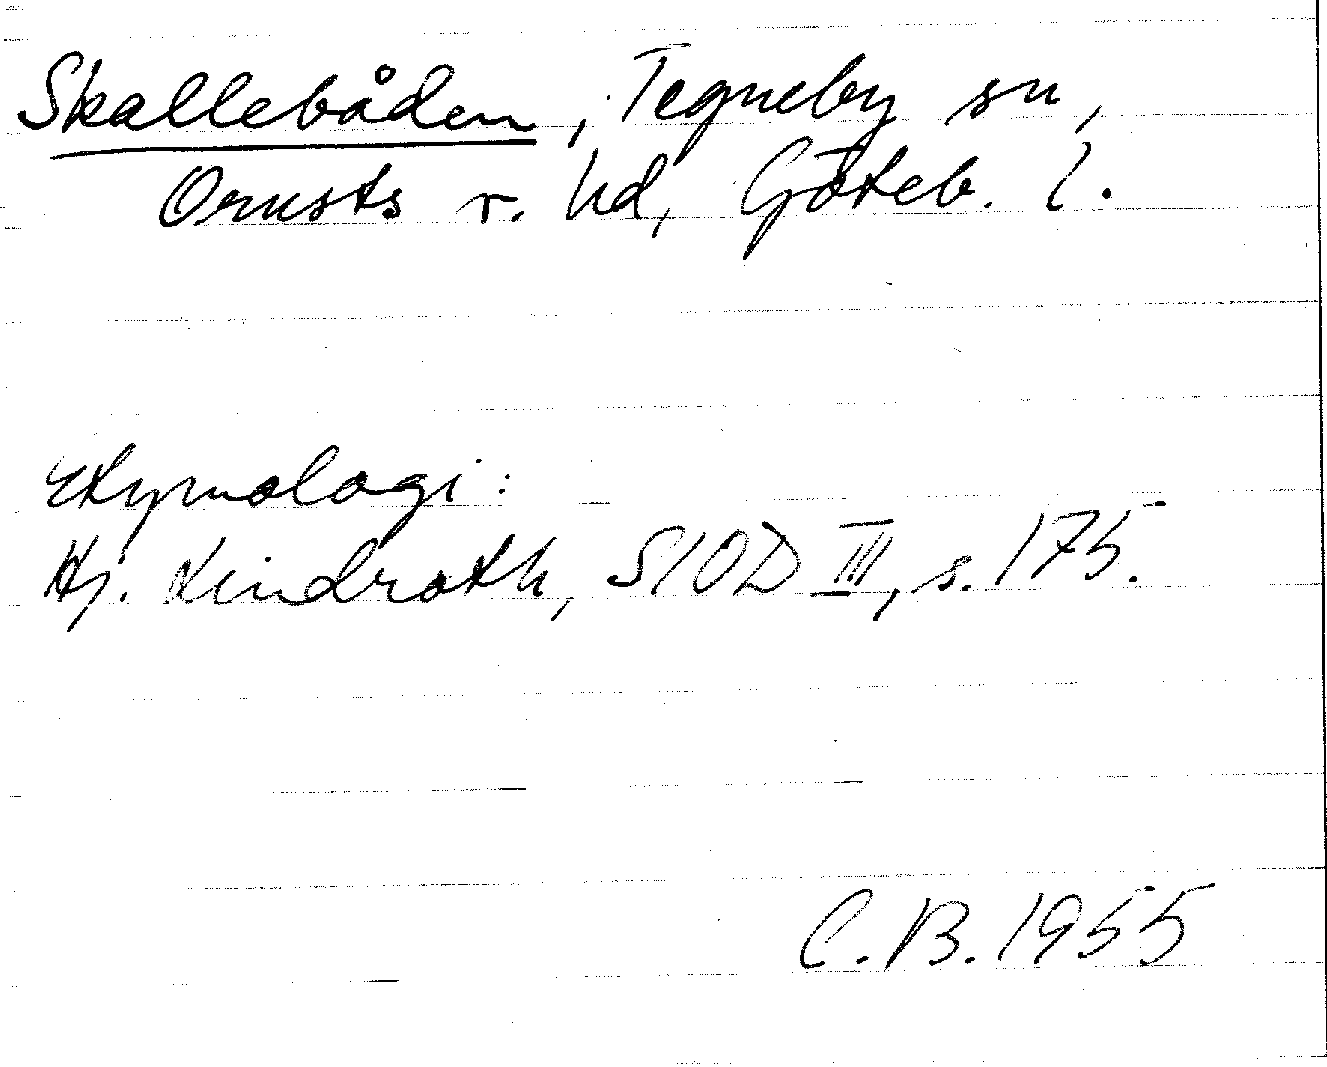 Skallebåden, Tegneby sn,
Orusts v. hd, Göteb. l.
Etymologi:
Hj. Lindroth, SIOD III, s. 175.
C.B. 1955